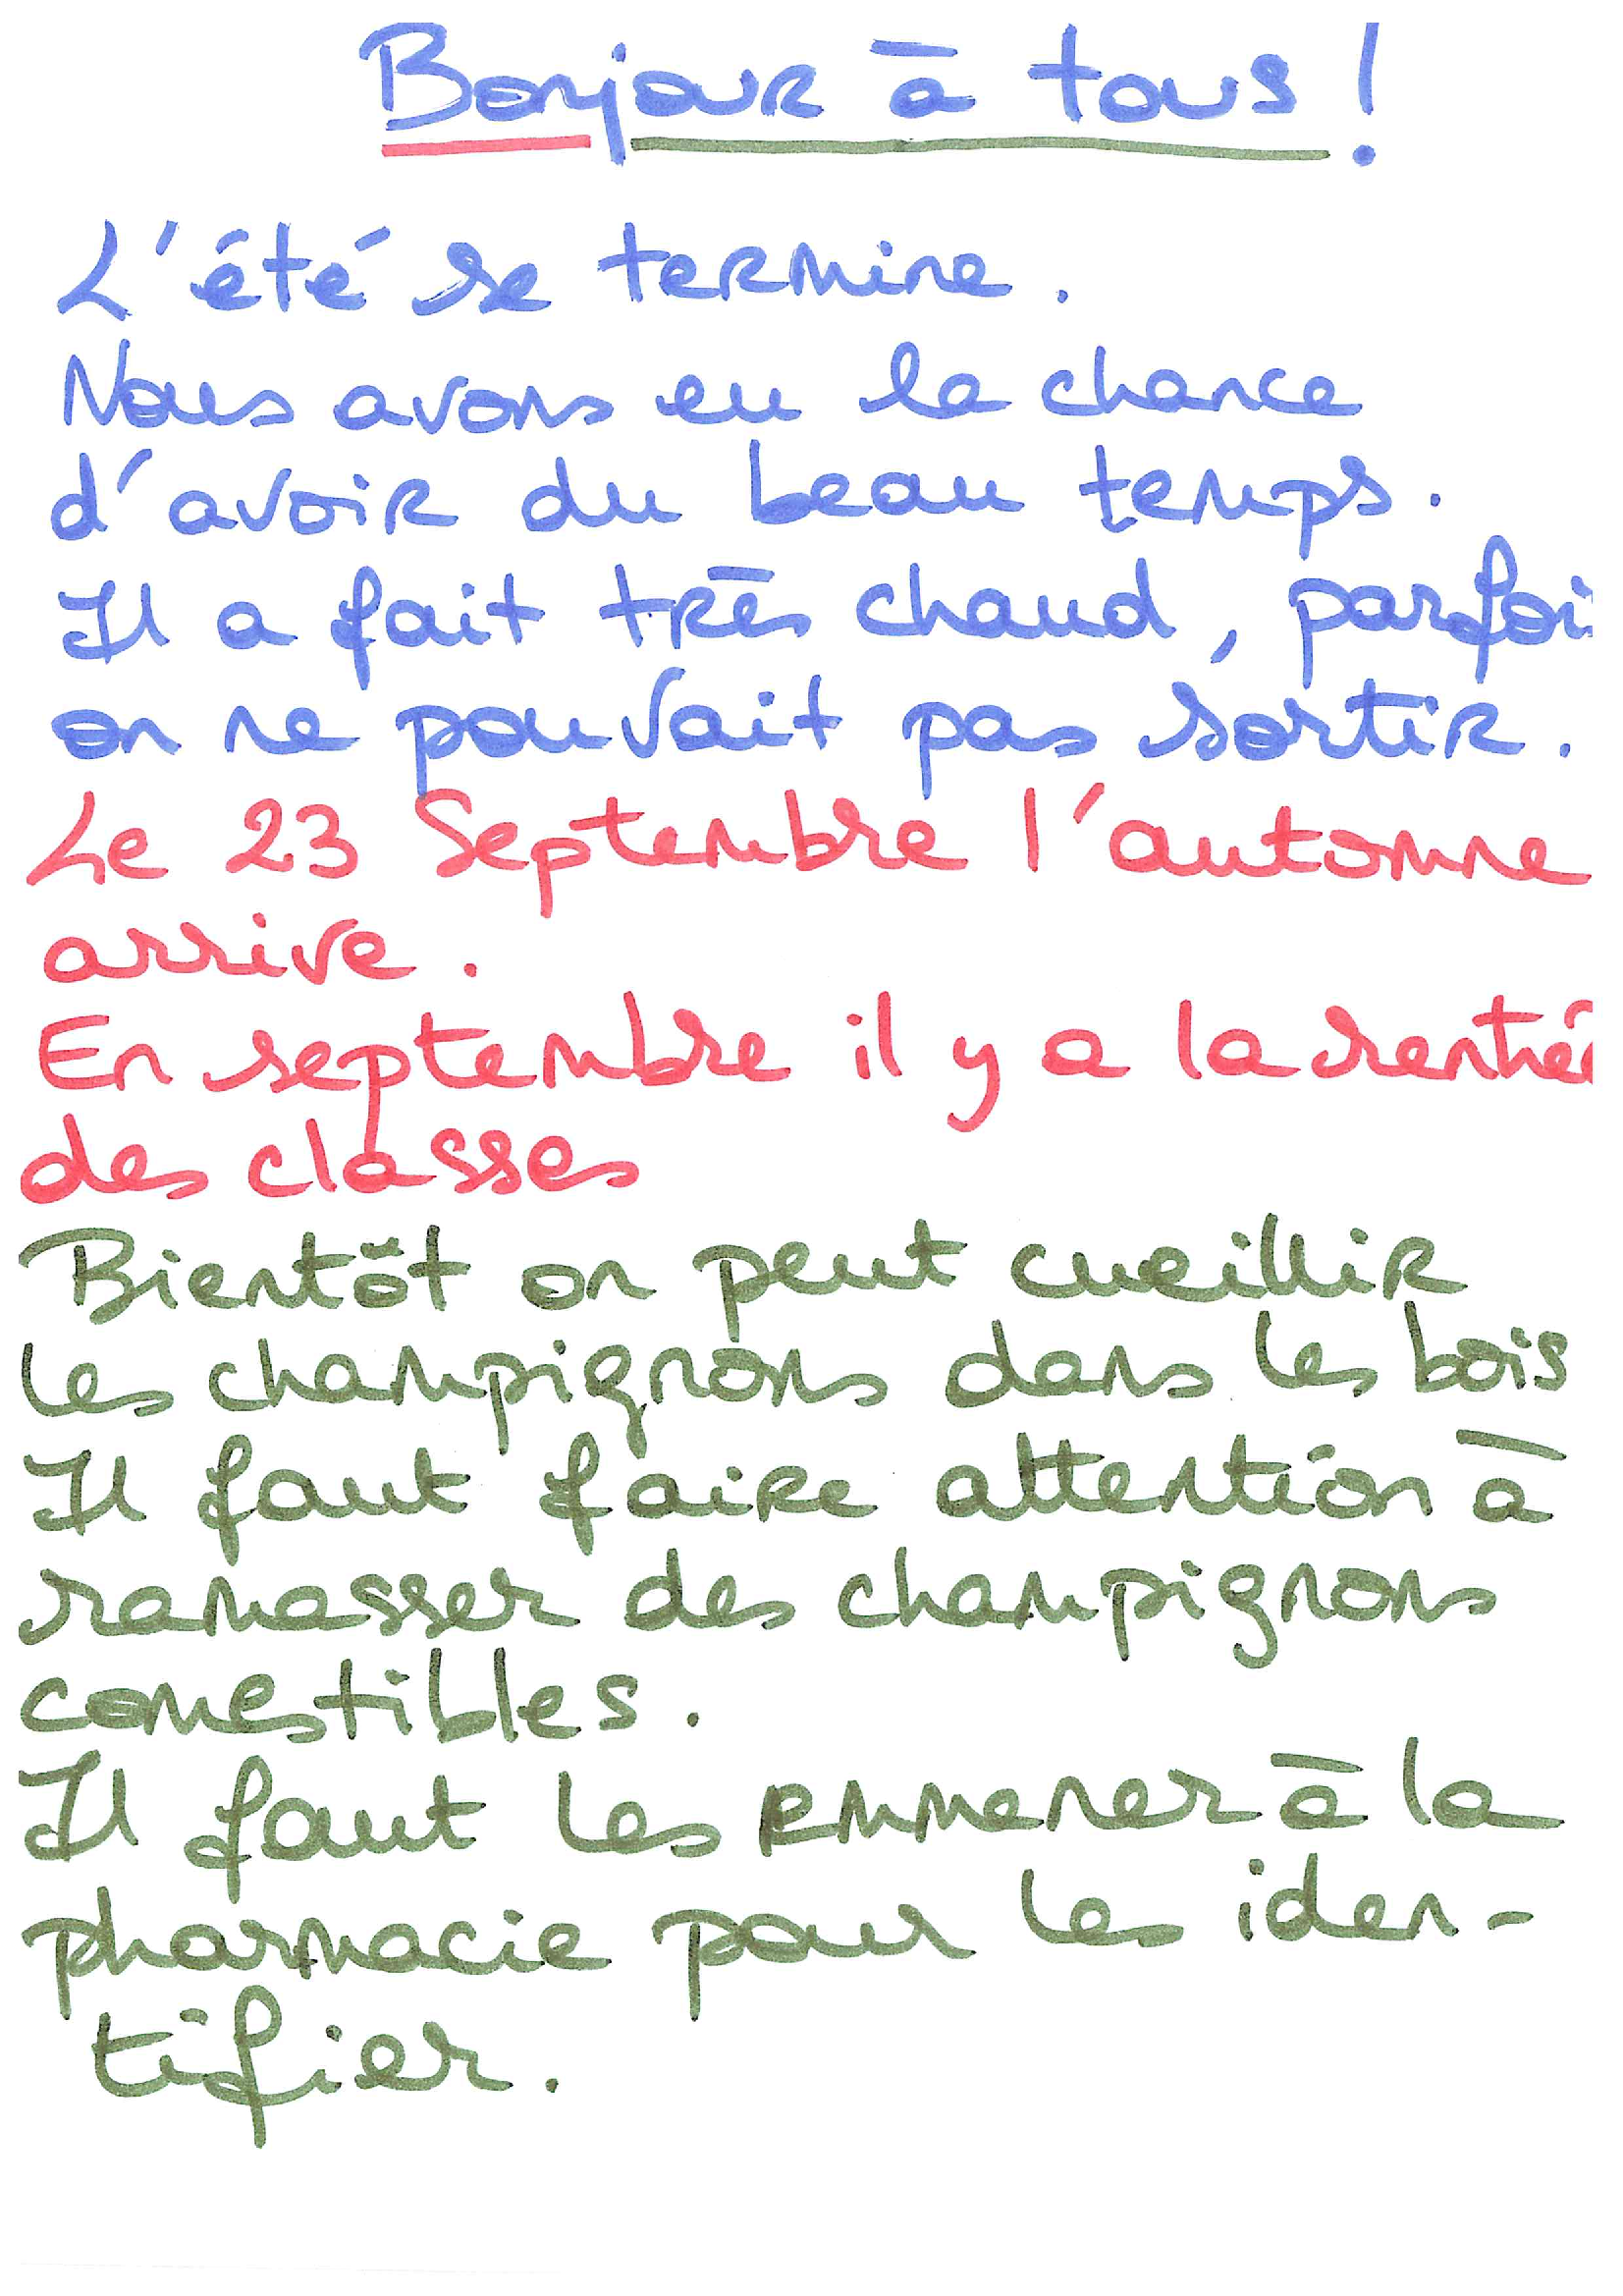 Bonjour à tous !
L'été se termine.
Nous avons eu la chance
d'avoir du beau temps.
Il a fait très chaud, parfoi
on ne pouvait pas sortir.
Le 23 Septembre l'automne
arrive.
En septembre il y a la rentrée
des classes
Bientôt on peut cueillir
les champignons dans les bois
Il faut faire attention à
ramasser des champignons
comestibles.
Il faut les emmener à la
pharmacie pour les iden-
tifier.